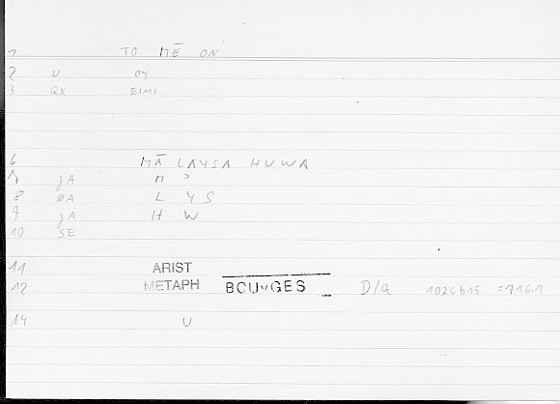 1 TO MĒ ON
2 U OY
3 QX EIMI
6 MĀ LAYSA HUWA
7 JA M ʾ
8 ØA L Y S
9 JA H W
10 SE
11 ARIST
12 METAPH BOUYGES D/a 1026b15 =716.1
14 U